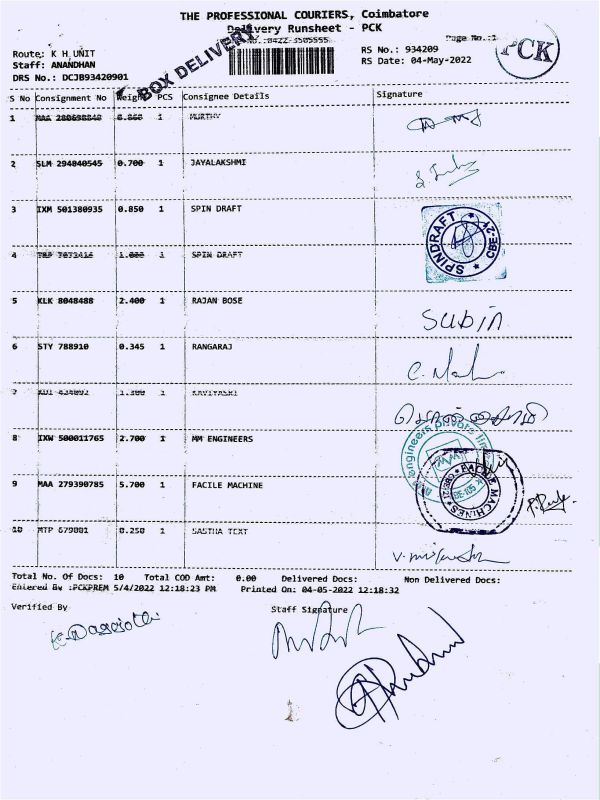 THE PROFESSIONAL COURIERS, Coimbatore
Delivery Runsheet - PCK
0422-3505555
Page No.:1
PCK
BOX DELIVERY
Route: K H UNIT
Staff: ANANDHAN
DRS No.: DCJB93420901
RS No.: 934209
RS Date: 04-May-2022
S No Consignment No Weight PCS Consignee Details Signature
1 MAA 280698848 0.860 1 MURTHY
2 SLM 294840545 0.700 1 JAYALAKSHMI
3 IXM 501380935 0.850 1 SPIN DRAFT
SPINDRAFT CBE-27
4 1.000 1 SPIN DRAFT
5 KLK 8048488 2.400 1 RAJAN BOSE
Subin
6 STY 788910 0.345 1 RANGARAJ
7 1.300 1
8 IXW 500011765 2.700 1 MM ENGINEERS
engineers private
9 MAA 279390785 5.700 1 FACILE MACHINE
MACHINES
10 MTP 679001 0.250 1 SASTHA TEXT
Total No. Of Docs: 10 Total COD Amt: 0.00 Delivered Docs: Non Delivered Docs:
Entered By :PCKPREM 5/4/2022 12:18:23 PM Printed On: 04-05-2022 12:18:32
Verified By
Staff Signature